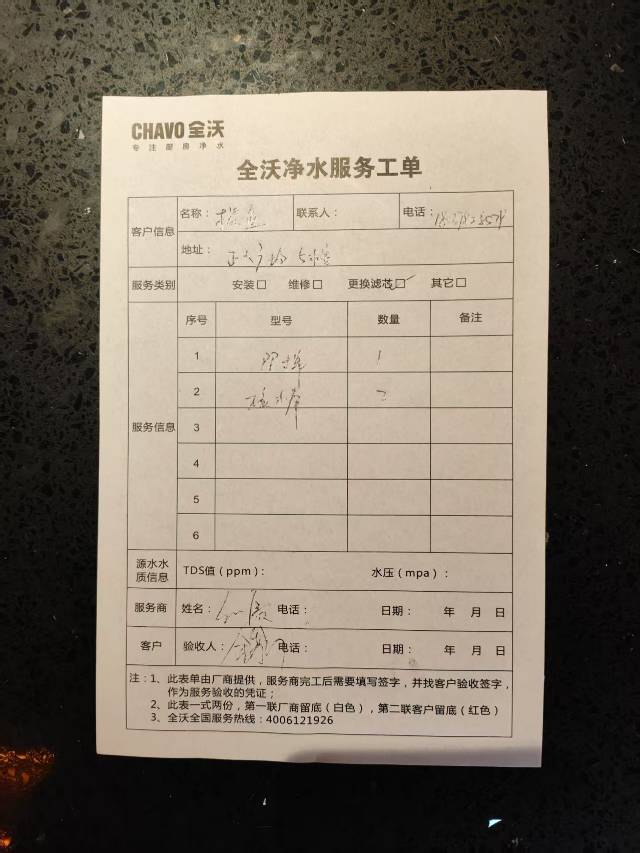 CHAVO 全沃
专注厨房净水
全沃净水服务工单
客户信息 名称： 联系人： 电话：
地址：
服务类别 安装□ 维修□ 更换滤芯□✓ 其它□
服务信息 序号 型号 数量 备注
1 PP棉 1
2 2
3
4
5
6
源水水质信息 TDS值（ppm）： 水压（mpa）：
服务商 姓名： 电话： 日期： 年 月 日
客户 验收人： 电话： 日期： 年 月 日
注：1、此表单由厂商提供，服务商完工后需要填写签字，并找客户验收签字，
作为服务验收的凭证；
2、此表一式两份，第一联厂商留底（白色），第二联客户留底（红色）
3、全沃全国服务热线：4006121926